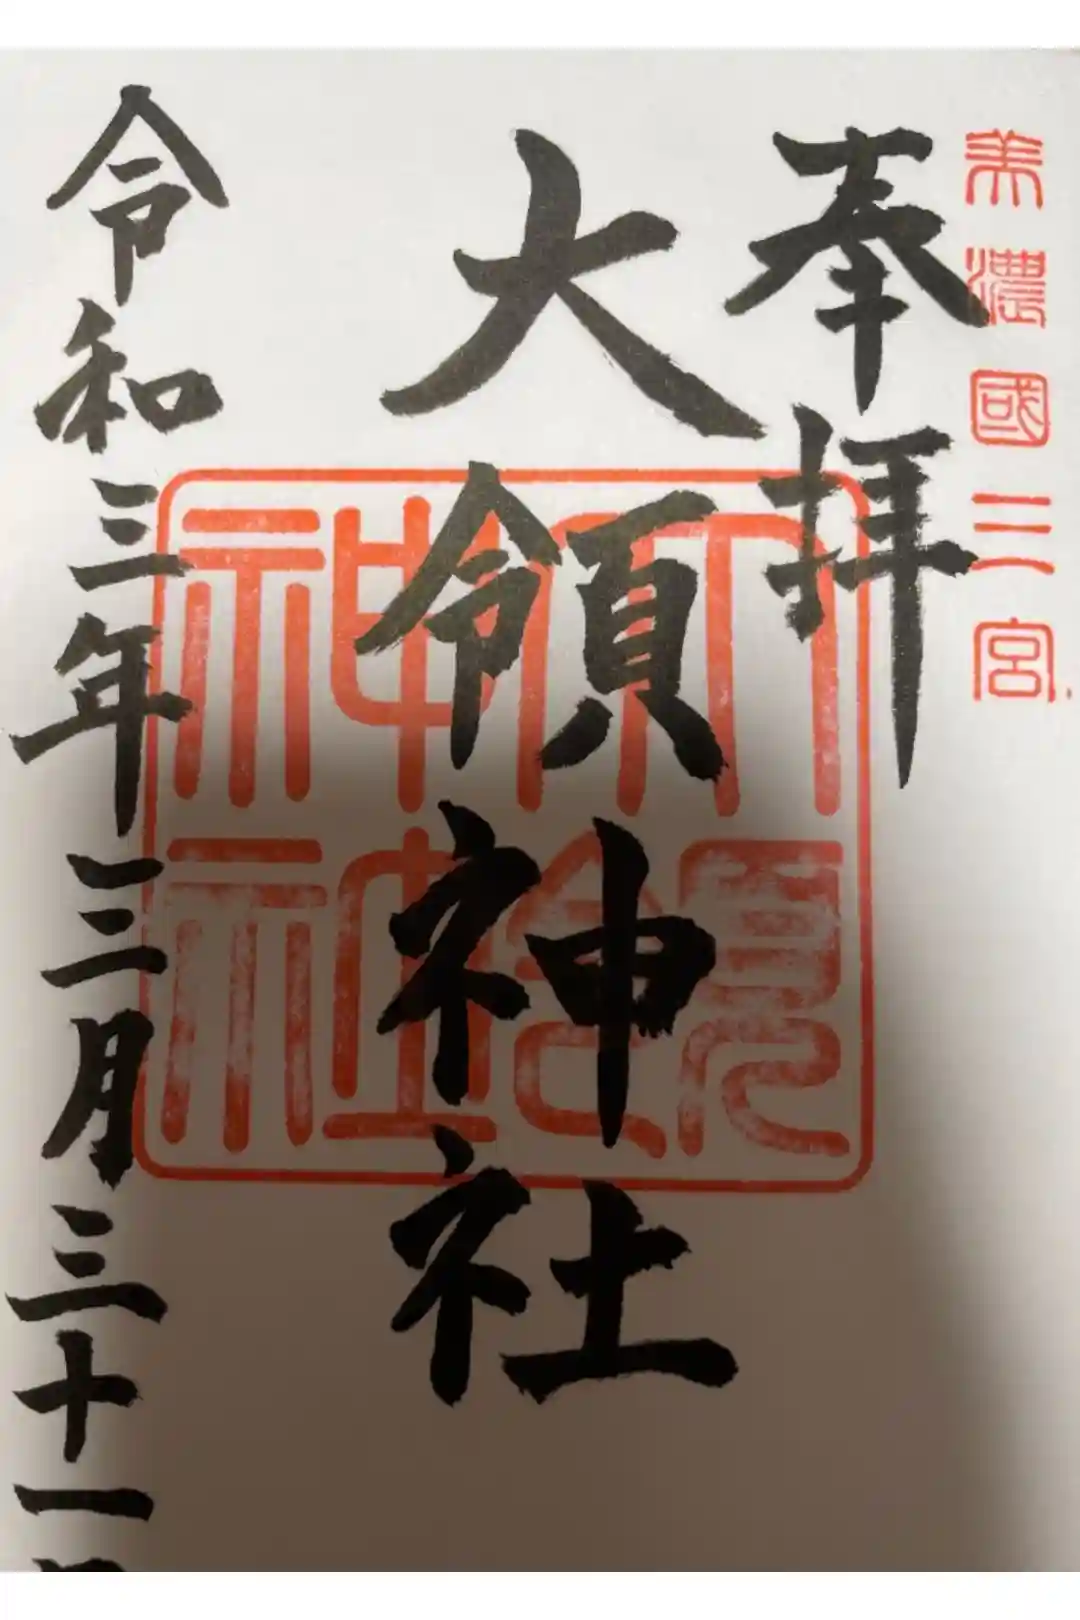 美濃國三宮
奉拝
大領神社
大領
神社
令和三年三月三十一日